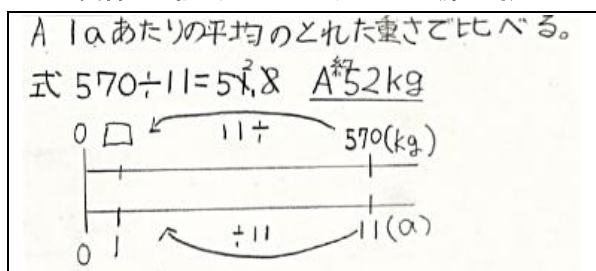 A 1aあたりの平均のとれた重さで比べる。
式 570÷11=51.8 A約52kg
2
0 □ 11÷ 570(kg)
0 1 ÷11 11(a)